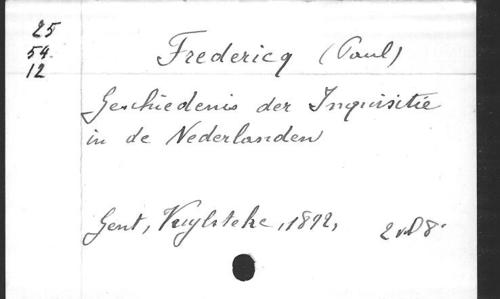 25
54.
12
Fredericq (Paul)
Geschiedenis der Inquisitie
in de Nederlanden
Gent, Vuylsteke, 1892, 2 vol 8°